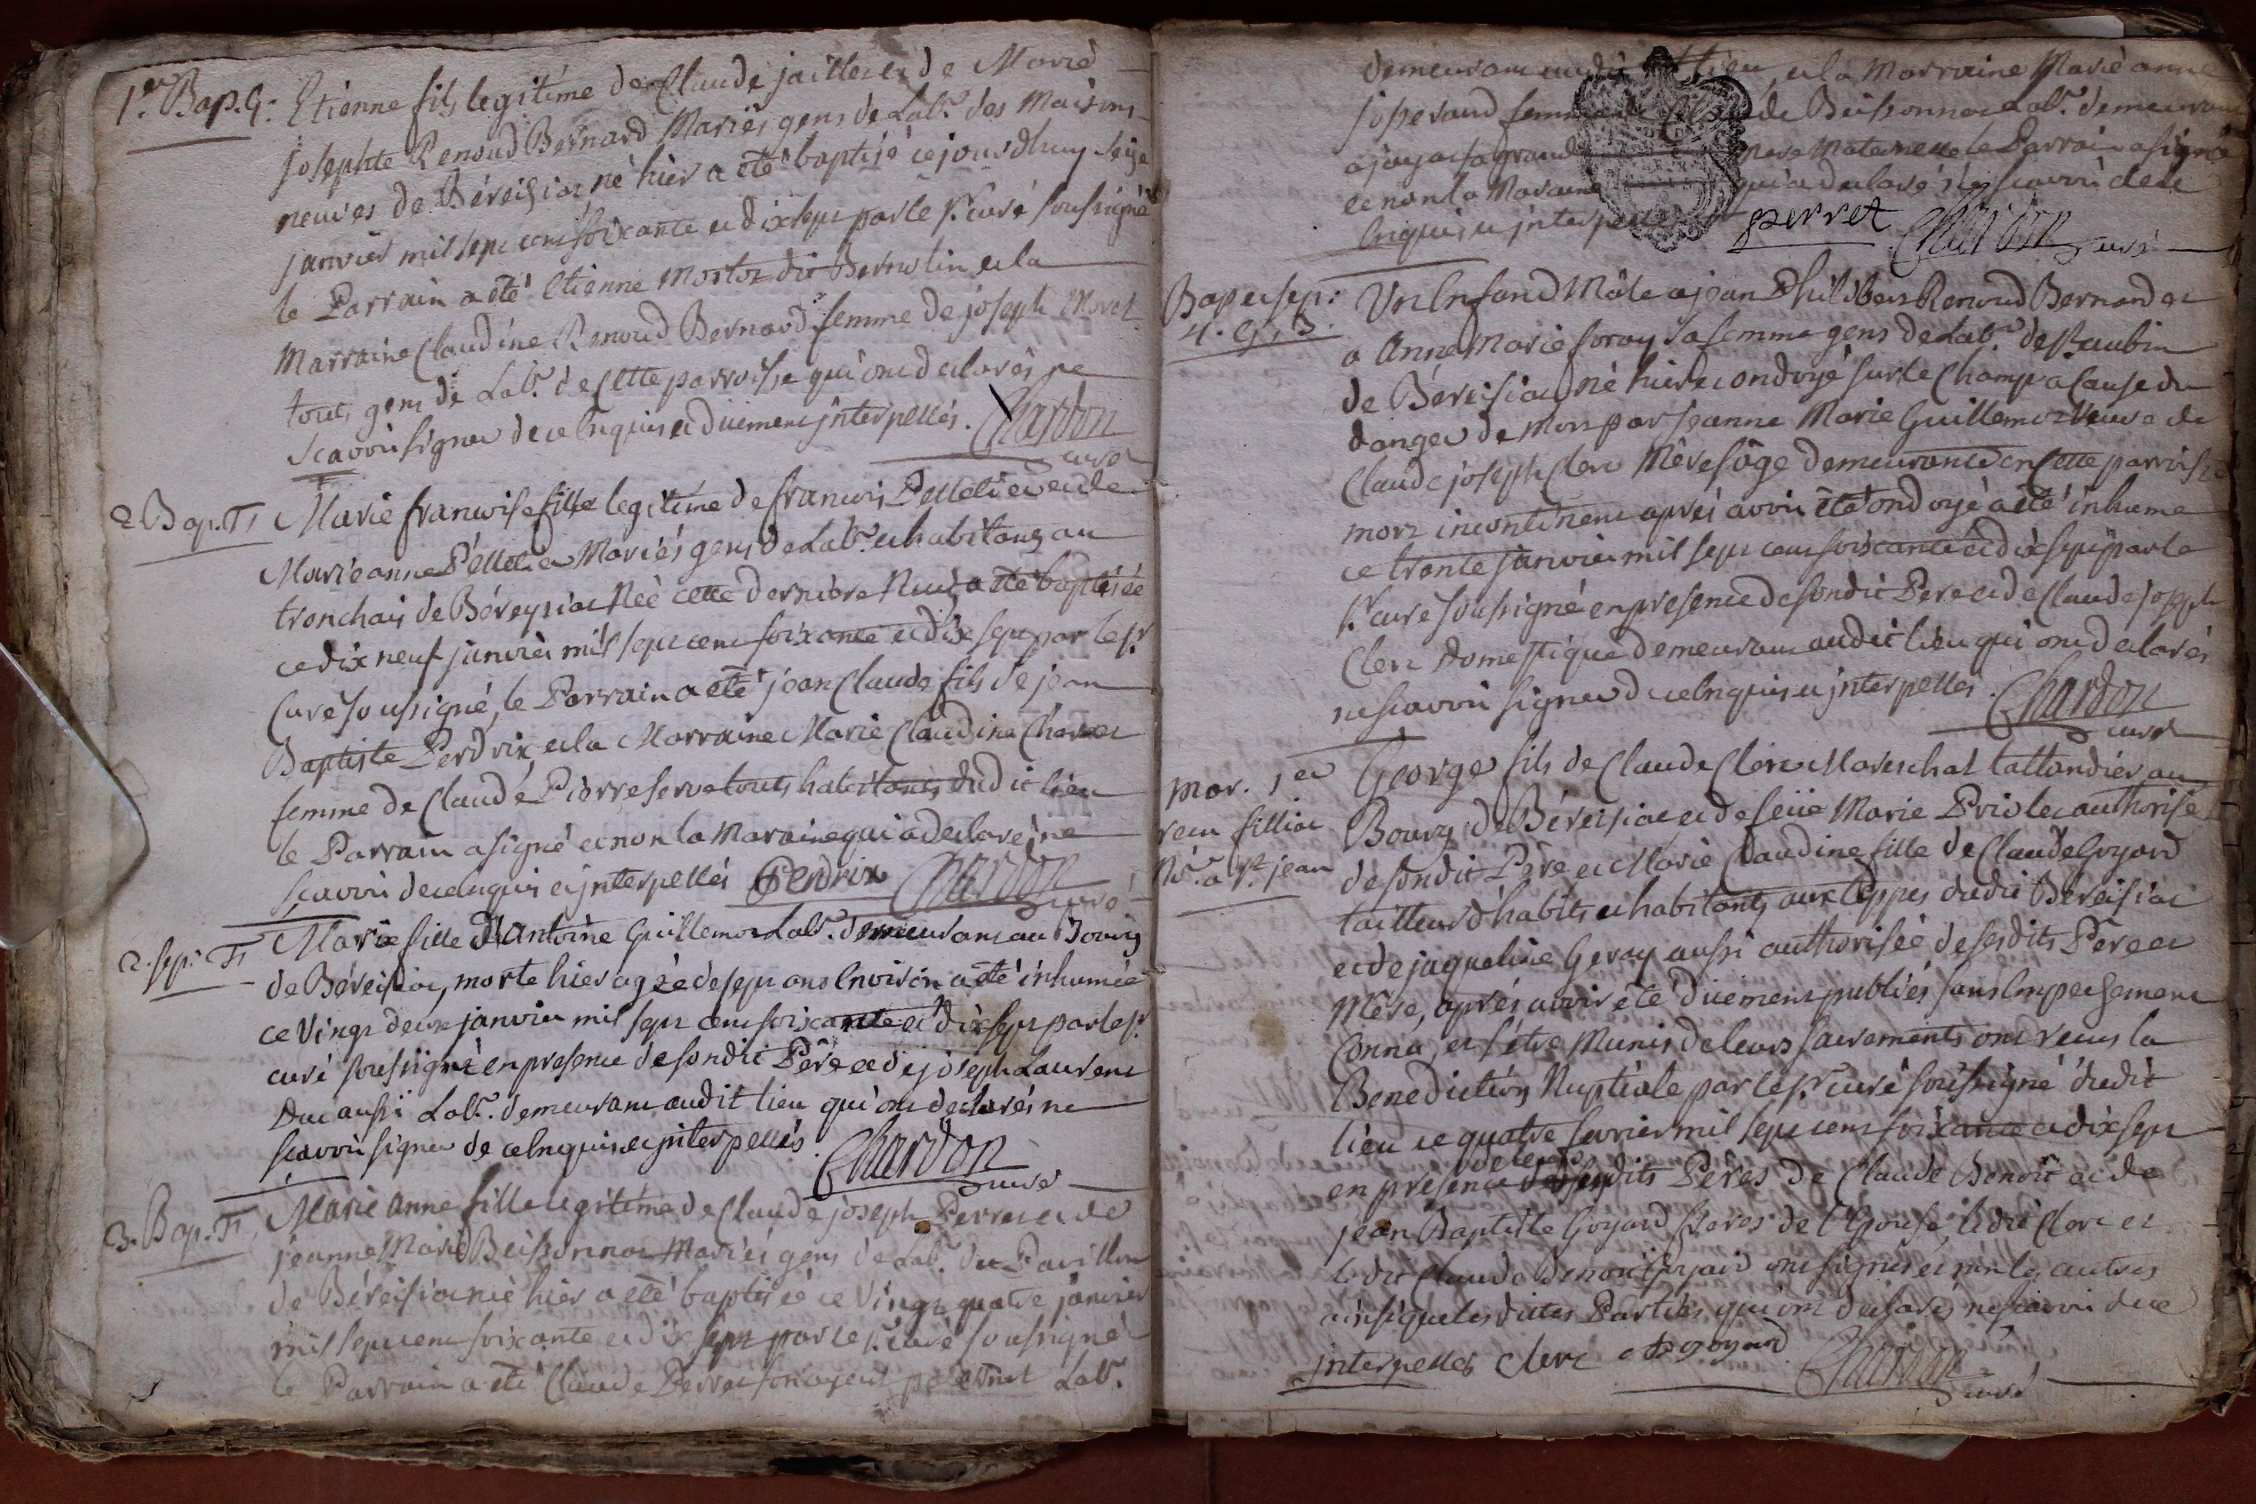 1er Bap. G. Etienne fils legitime de Claude jaillet et de Marie
josephte Renoud Bernard Mariés gens de Labr. des Maisons
neuves de Béreisiat né hier a été baptisé ce jourdhuy seize
janvier mil sept cent soixante et dix sept par le sr. curé soussigné
le Parrain a été Etienne Mortor dit Bernolin et la
Marraine Claudine Renoud Bernard femme de joseph Moret
touts gens de Labr. de cette parroisse qui ont declarés ne
scavoir signer de ce Enquis et düement jnterpellés. Chardon
curé
2 Bap. F. Marie francoise fille legitime de francois Pelletier et de
Marie anne Pelletier Mariés gens de Labr. et habitants au
tronchais de Béreysiat Née cette derniére Nuit a été baptisée
ce dix neuf janvier mil sept cent soixante et dix sept par le sr.
Curé soussigné, le Parrain a été jean Claude fils de jean
Baptiste Perdrix, et la Marraine Marie Claudine
femme de Claude Pierre serve touts habitants dudit lieu
le Parrain a signé et non la Maraine qui a declaré ne
scavoir de ce enquis et jnterpellés Perdrix Chardon
curé
2. sep. F. Marie fille d'Antoine Guillemot Labr. demeurant au Bourg
de Béreisiat, morte hier agée de sept ans Environ a été inhumée
ce Vingt deux janvier mil sept cent soixante et dix sept par le sr.
curé soussigné en presence de sondit Pére et de joseph Laurent
Duc aussi Labr. demeurant audit lieu qui ont declarés ne
scavoir signer de ce Enquis et jnterpellés. Chardon
curé
3. Bap. F. Marie Anne fille legitime de Claude joseph Perret et de
jeanne Marie Buissonnat Mariés gens de Labr. du Pavillon
de Béreisiat née hier a été baptisée ce Vingt quatre janvier
mil sept cent soixante et dix sept par le sr. curé soussigné
le Parrain a été Claude Perret son ayeul paternel Labr.
demeurant audit lieu, et la Marraine Marie anne
josserand femme de de Buissonnat Labr. demeurant
a jayat sa grand mere Maternelle le Parrain a signé
et non la Maraine qui a declaré ne scavoir de ce
Enquis et jnterpellée perret Chardon
curé
Bap et sep.
4. G. 3. Un Enfand Mâle a jean Philibert Renoud Bernard et
a Anne Marie foray sa femme gens de Labr. de
de Béreisiat né hier et ondoyé sur le Champ a Cause du
danger de Mort par jeanne Marie Guillemot Veuve de
Claude joseph Clerc Mére sâge demeurante en Cette parroisse
mort incontinent aprés avoir été ondoyé a été inhumé
ce trente janvier mil sept cent soixante et dix sept par le
sr. curé soussigné en presence de sondit Pere et de Claude joseph
Clerc domestique demeurant audit lieu qui ont declarés
ne scavoir signer de ce Enquis et jnterpellés. Chardon
curé
mar. 1er
recu filliat
a st. jean
George fils de Claude Clerc Mareschal tallandier au
Bourg de Béreisiat et de feüe Marie Priolet authorisé
de sondit Pére et Marie Claudine fille de Claude Goyard
tailleur d'habits et habitants aux teppes dudit Béreisiat
et de jaqueline Geray aussi authorisée de sesdits Pére et
Mére, aprés avoir été düement publiés sans Empechement
Connu, et s'étre Munis de leurs sacrements ont recus la
Benediction Nuptiale par le sr. curé soussigné dudit
lieu ce quatre fevrier mil sept cent soixante et dix sept
en presence de leurs dits Péres de Claude Benoît et de
jean Baptiste Goyard freres de l'Epouse, ledit Clerc et
ledit Claude Benoit Goyard ont signés et non les autres
ainsi que lesdittes Parties qui ont declarés ne scavoir de ce
jnterpellés Clerc goyard Chardon
curé